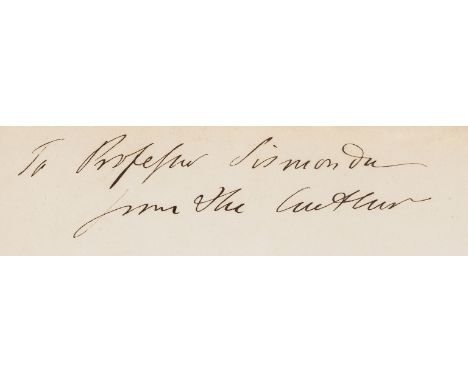 To Professor Sismonda
from the Author